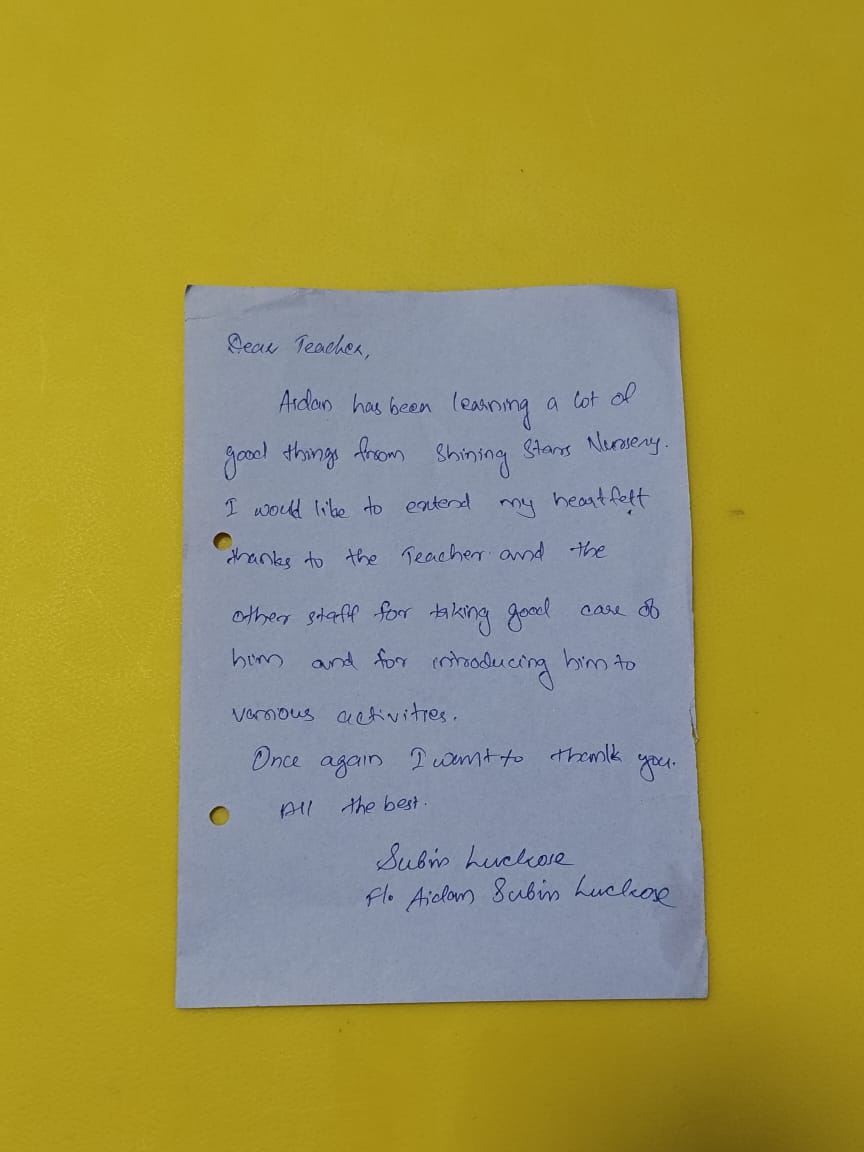 Dear Teacher,
Aidan has been learning a lot of
good things from Shining Stars Nursery.
I would like to extend my heartfelt
thanks to the Teacher and the
other staff for taking good care of
him and for introducing him to
various activities.
Once again I want to thank you.
All the best.
Subin Luckose
F/o Aidan Subin Luckose